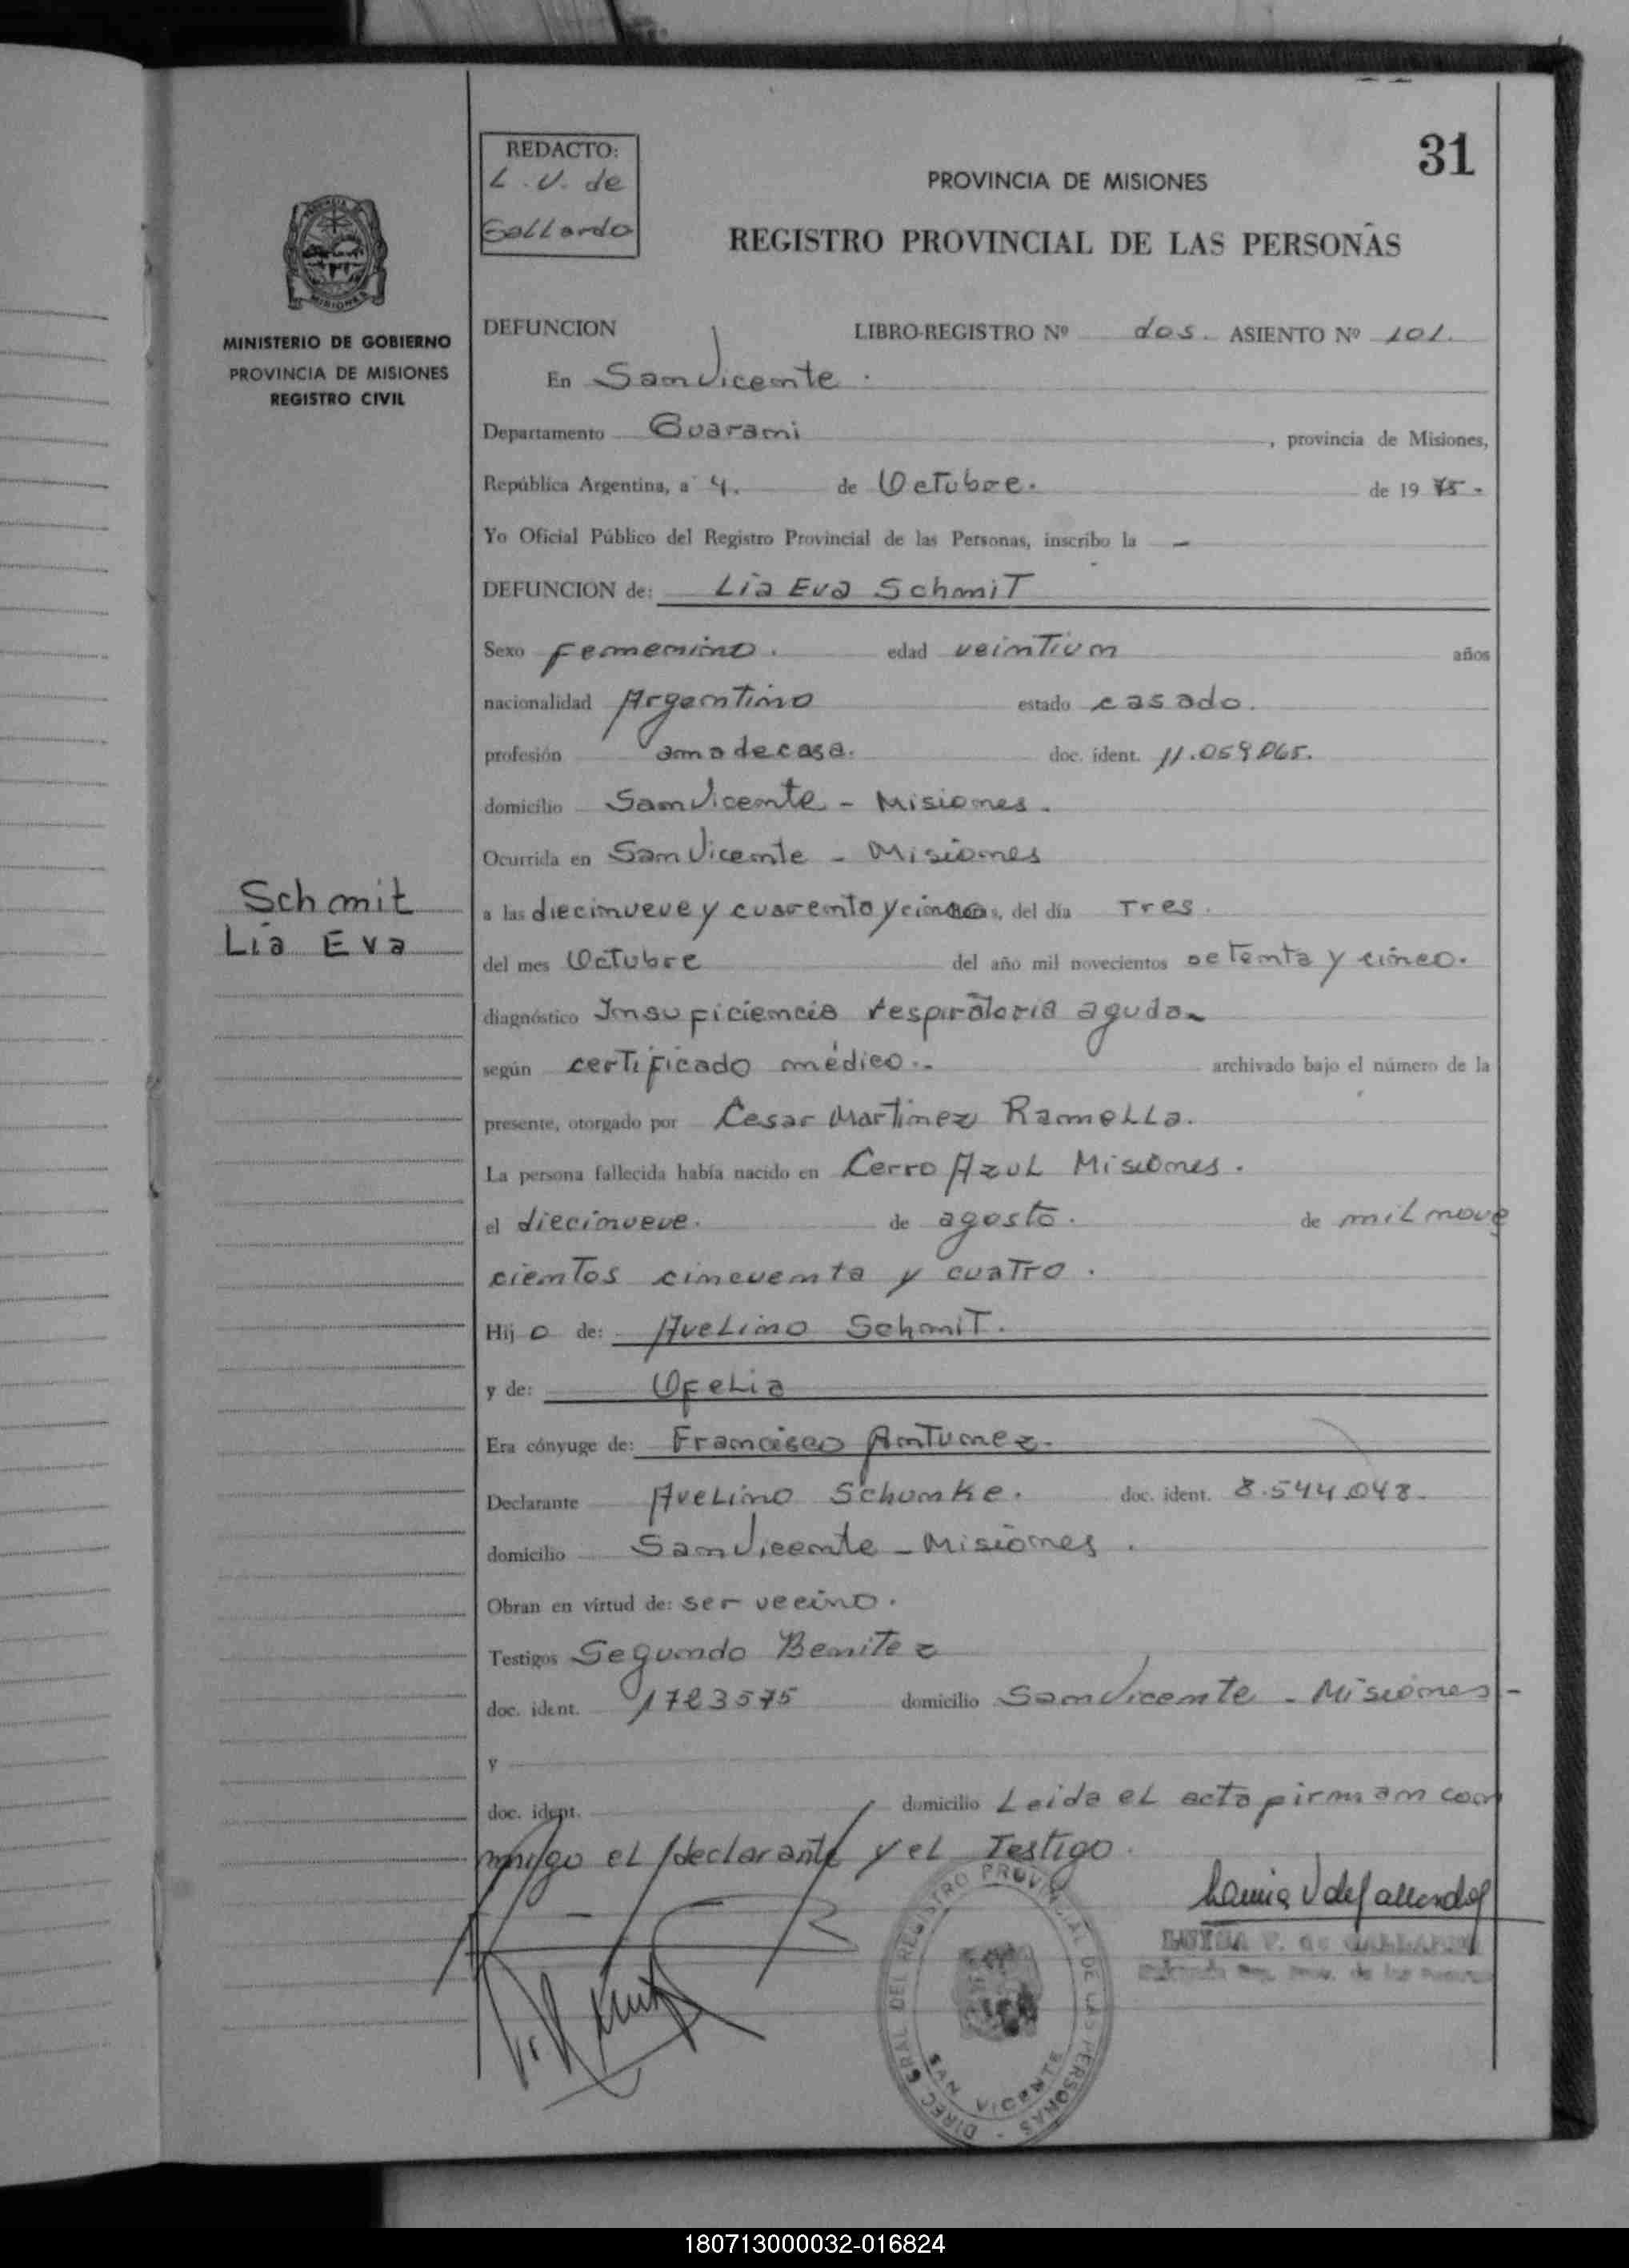 31
REDACTO:
L. V. de
Gallardo
PROVINCIA DE MISIONES
REGISTRO PROVINCIAL DE LAS PERSONAS
PROVINCIA DE
MISIONES
MINISTERIO DE GOBIERNO
PROVINCIA DE MISIONES
REGISTRO CIVIL
DEFUNCION LIBRO-REGISTRO Nº dos. ASIENTO Nº 101.
En San Vicente.
Departamento Guarani, provincia de Misiones,
República Argentina, a 4. de Octubre. de 1975.
Yo Oficial Público del Registro Provincial de las Personas, inscribo la —
DEFUNCION de: Lia Eva Schmit
Sexo femenino. edad veintiun años
nacionalidad Argentino estado casado.
profesión ama de casa. doc. ident. 11.059.065.
domicilio San Vicente - Misiones.
Ocurrida en San Vicente - Misiones
Schmit
Lia Eva
a las diecinueve y cuarenta y cinco, del día Tres.
del mes Octubre del año mil novecientos setenta y cinco.
diagnóstico Insuficiencia respiratoria aguda
según certificado médico.- archivado bajo el número de la
presente, otorgado por Cesar Martinez Ramella.
La persona fallecida había nacido en Cerro Azul Misiones.
el diecinueve. de agosto. de mil nove
cientos cincuenta y cuatro.
Hijo de: Avelino Schmit.
y de: Ofelia
Era cónyuge de: Francisco Antunez.
Declarante Avelino Schunke. doc. ident. 8.544.048.
domicilio San Vicente - Misiones.
Obran en virtud de: ser vecino.
Testigos Segundo Benitez
doc. ident. 1723575 domicilio San Vicente - Misiones -
y
doc. ident. domicilio Leida el acta firman con
migo el declarante y el Testigo.
DIREC GRAL DEL REGISTRO PROVINCIAL DE LAS PERSONAS -
SAN VICENTE
LUISA V. de GALLARDO
180713000032-016824